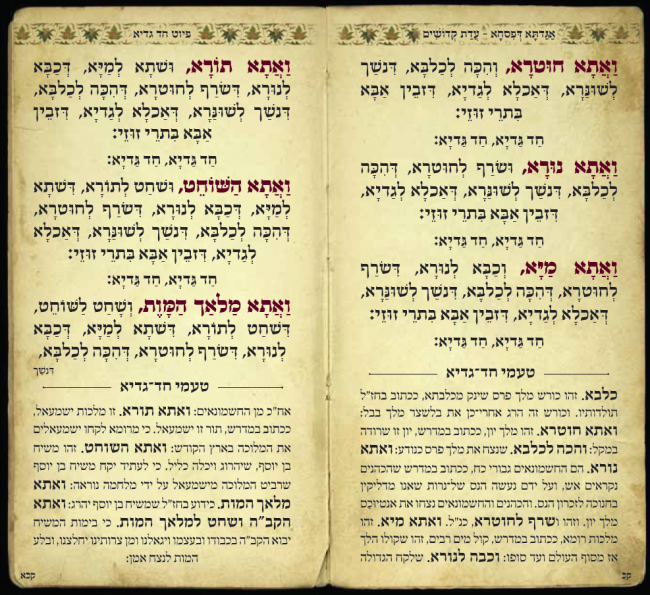 אַגַּדְתָּא דְּפִסְחָא - עֲדַת קְדוֹשִׁים
וַאֲתָא חוּטְרָא, וְהִכָּה לְכַלְבָּא, דְּנָשַׁךְ
לְשׁוּנְּרָא, דְּאַכְלָא לְגַדְיָא, דְּזַבִּין אַבָּא
בִּתְרֵי זוּזֵי:
חַד גַּדְיָא, חַד גַּדְיָא:
וַאֲתָא נוּרָא, וְשָׂרַף לְחוּטְרָא, דְּהִכָּה
לְכַלְבָּא, דְּנָשַׁךְ לְשׁוּנְּרָא, דְּאַכְלָא לְגַדְיָא,
דְּזַבִּין אַבָּא בִּתְרֵי זוּזֵי:
חַד גַּדְיָא, חַד גַּדְיָא:
וַאֲתָא מַיָּא, וְכָבָּא לְנוּרָא, דְּשָׂרַף
לְחוּטְרָא, דְּהִכָּה לְכַלְבָּא, דְּנָשַׁךְ לְשׁוּנְּרָא,
דְּאַכְלָא לְגַדְיָא, דְּזַבִּין אַבָּא בִּתְרֵי זוּזֵי:
חַד גַּדְיָא, חַד גַּדְיָא:
טעמי חד־גדיא
כלבא. זהו כורש מלך פרס שינק מכלבתא, ככתוב בחז"ל
תולדותיו. וכורש זה הרג אחרי־כן את בלשצר מלך בבל:
ואתא חוטרא. זהו מלך יון, ככתוב במדרש, יון זו שרודה
במקל: והכה לכלבא. שנצח את מלך פרס כנודע: ואתא
נורא. הם החשמונאים גבורי כח, ככתוב במדרש שהכהנים
נקראים אש, ועל ידם נעשה הנס של־נרות שאנו מדליקין
בחנוכה לזכרון הנס. והכהנים והחשמונאים נצחו את אנטיוכס
מלך יון. וזהו ושרף לחוטרא, כנ"ל. ואתא מיא. זהו
מלכות רומא, ככתוב במדרש, קול מים רבים, זהו שקולו הלך
אז מסוף העולם ועד סופו: וכבה לנורא. שלקח הגדולה
קכ
פיוט חד גדיא
וַאֲתָא תוֹרָא, וְשָׁתָא לְמַיָּא, דְּכָבָּא
לְנוּרָא, דְּשָׂרַף לְחוּטְרָא, דְּהִכָּה לְכַלְבָּא,
דְּנָשַׁךְ לְשׁוּנְּרָא, דְּאַכְלָא לְגַדְיָא, דְּזַבִּין
אַבָּא בִּתְרֵי זוּזֵי:
חַד גַּדְיָא, חַד גַּדְיָא:
וַאֲתָא הַשּׁוֹחֵט, וְשָׁחַט לְתוֹרָא, דְּשָׁתָא
לְמַיָּא, דְּכָבָּא לְנוּרָא, דְּשָׂרַף לְחוּטְרָא,
דְּהִכָּה לְכַלְבָּא, דְּנָשַׁךְ לְשׁוּנְּרָא, דְּאַכְלָא
לְגַדְיָא, דְּזַבִּין אַבָּא בִּתְרֵי זוּזֵי:
חַד גַּדְיָא, חַד גַּדְיָא:
וַאֲתָא מַלְאַךְ הַמָּוֶת, וְשָׁחַט לְשׁוֹחֵט,
דְּשָׁחַט לְתוֹרָא, דְּשָׁתָא לְמַיָּא, דְּכָבָּא
לְנוּרָא, דְּשָׂרַף לְחוּטְרָא, דְּהִכָּה לְכַלְבָּא,
דְּנָשַׁךְ
טעמי חד־גדיא
אח"כ מן החשמונאים: ואתא תורא. זו מלכות ישמעאל,
ככתוב במדרש, תור זו ישמעאל. כי מרומא לקחו ישמעאלים
את המלוכה בארץ הקודש: ואתא השוחט. זהו משיח
בן יוסף, שיהרוג ויכלה כליל. כי לעתיד יקח משיח בן יוסף
שרביט המלוכה מישמעאל על ידי מלחמה נוראה: ואתא
מלאך המות. כידוע בחז"ל שמשיח בן יוסף יהרג: ואתא
הקב"ה ושחט למלאך המות. כי בימות המשיח
יבוא הקב"ה בכבודו ובעצמו ויגאלנו ומן צרותינו יחלצנו, ובלע
המות לנצח אמן:
קכא